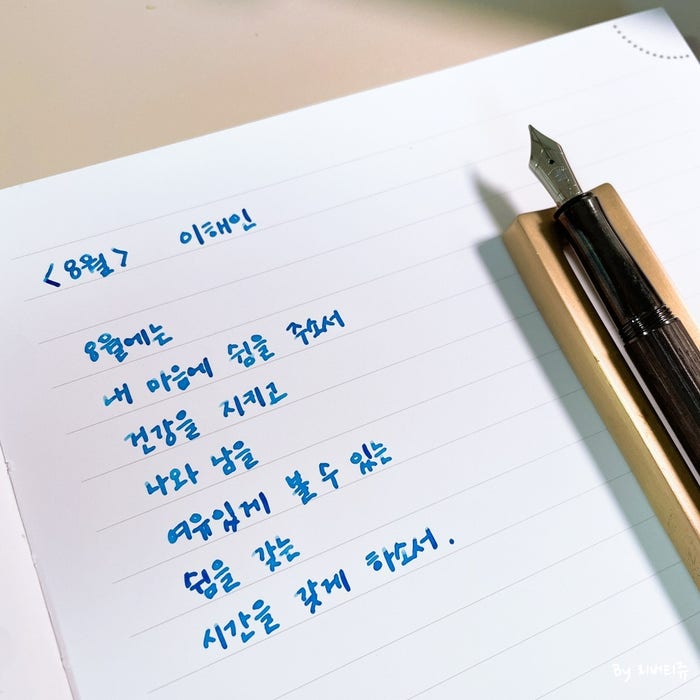 <8월> 이해인
8월에는
내 마음에 쉼을 주소서
건강을 지키고
나와 남을
여유있게 볼 수 있는
쉼을 갖는
시간을 갖게 하소서.
By 리버티쥬